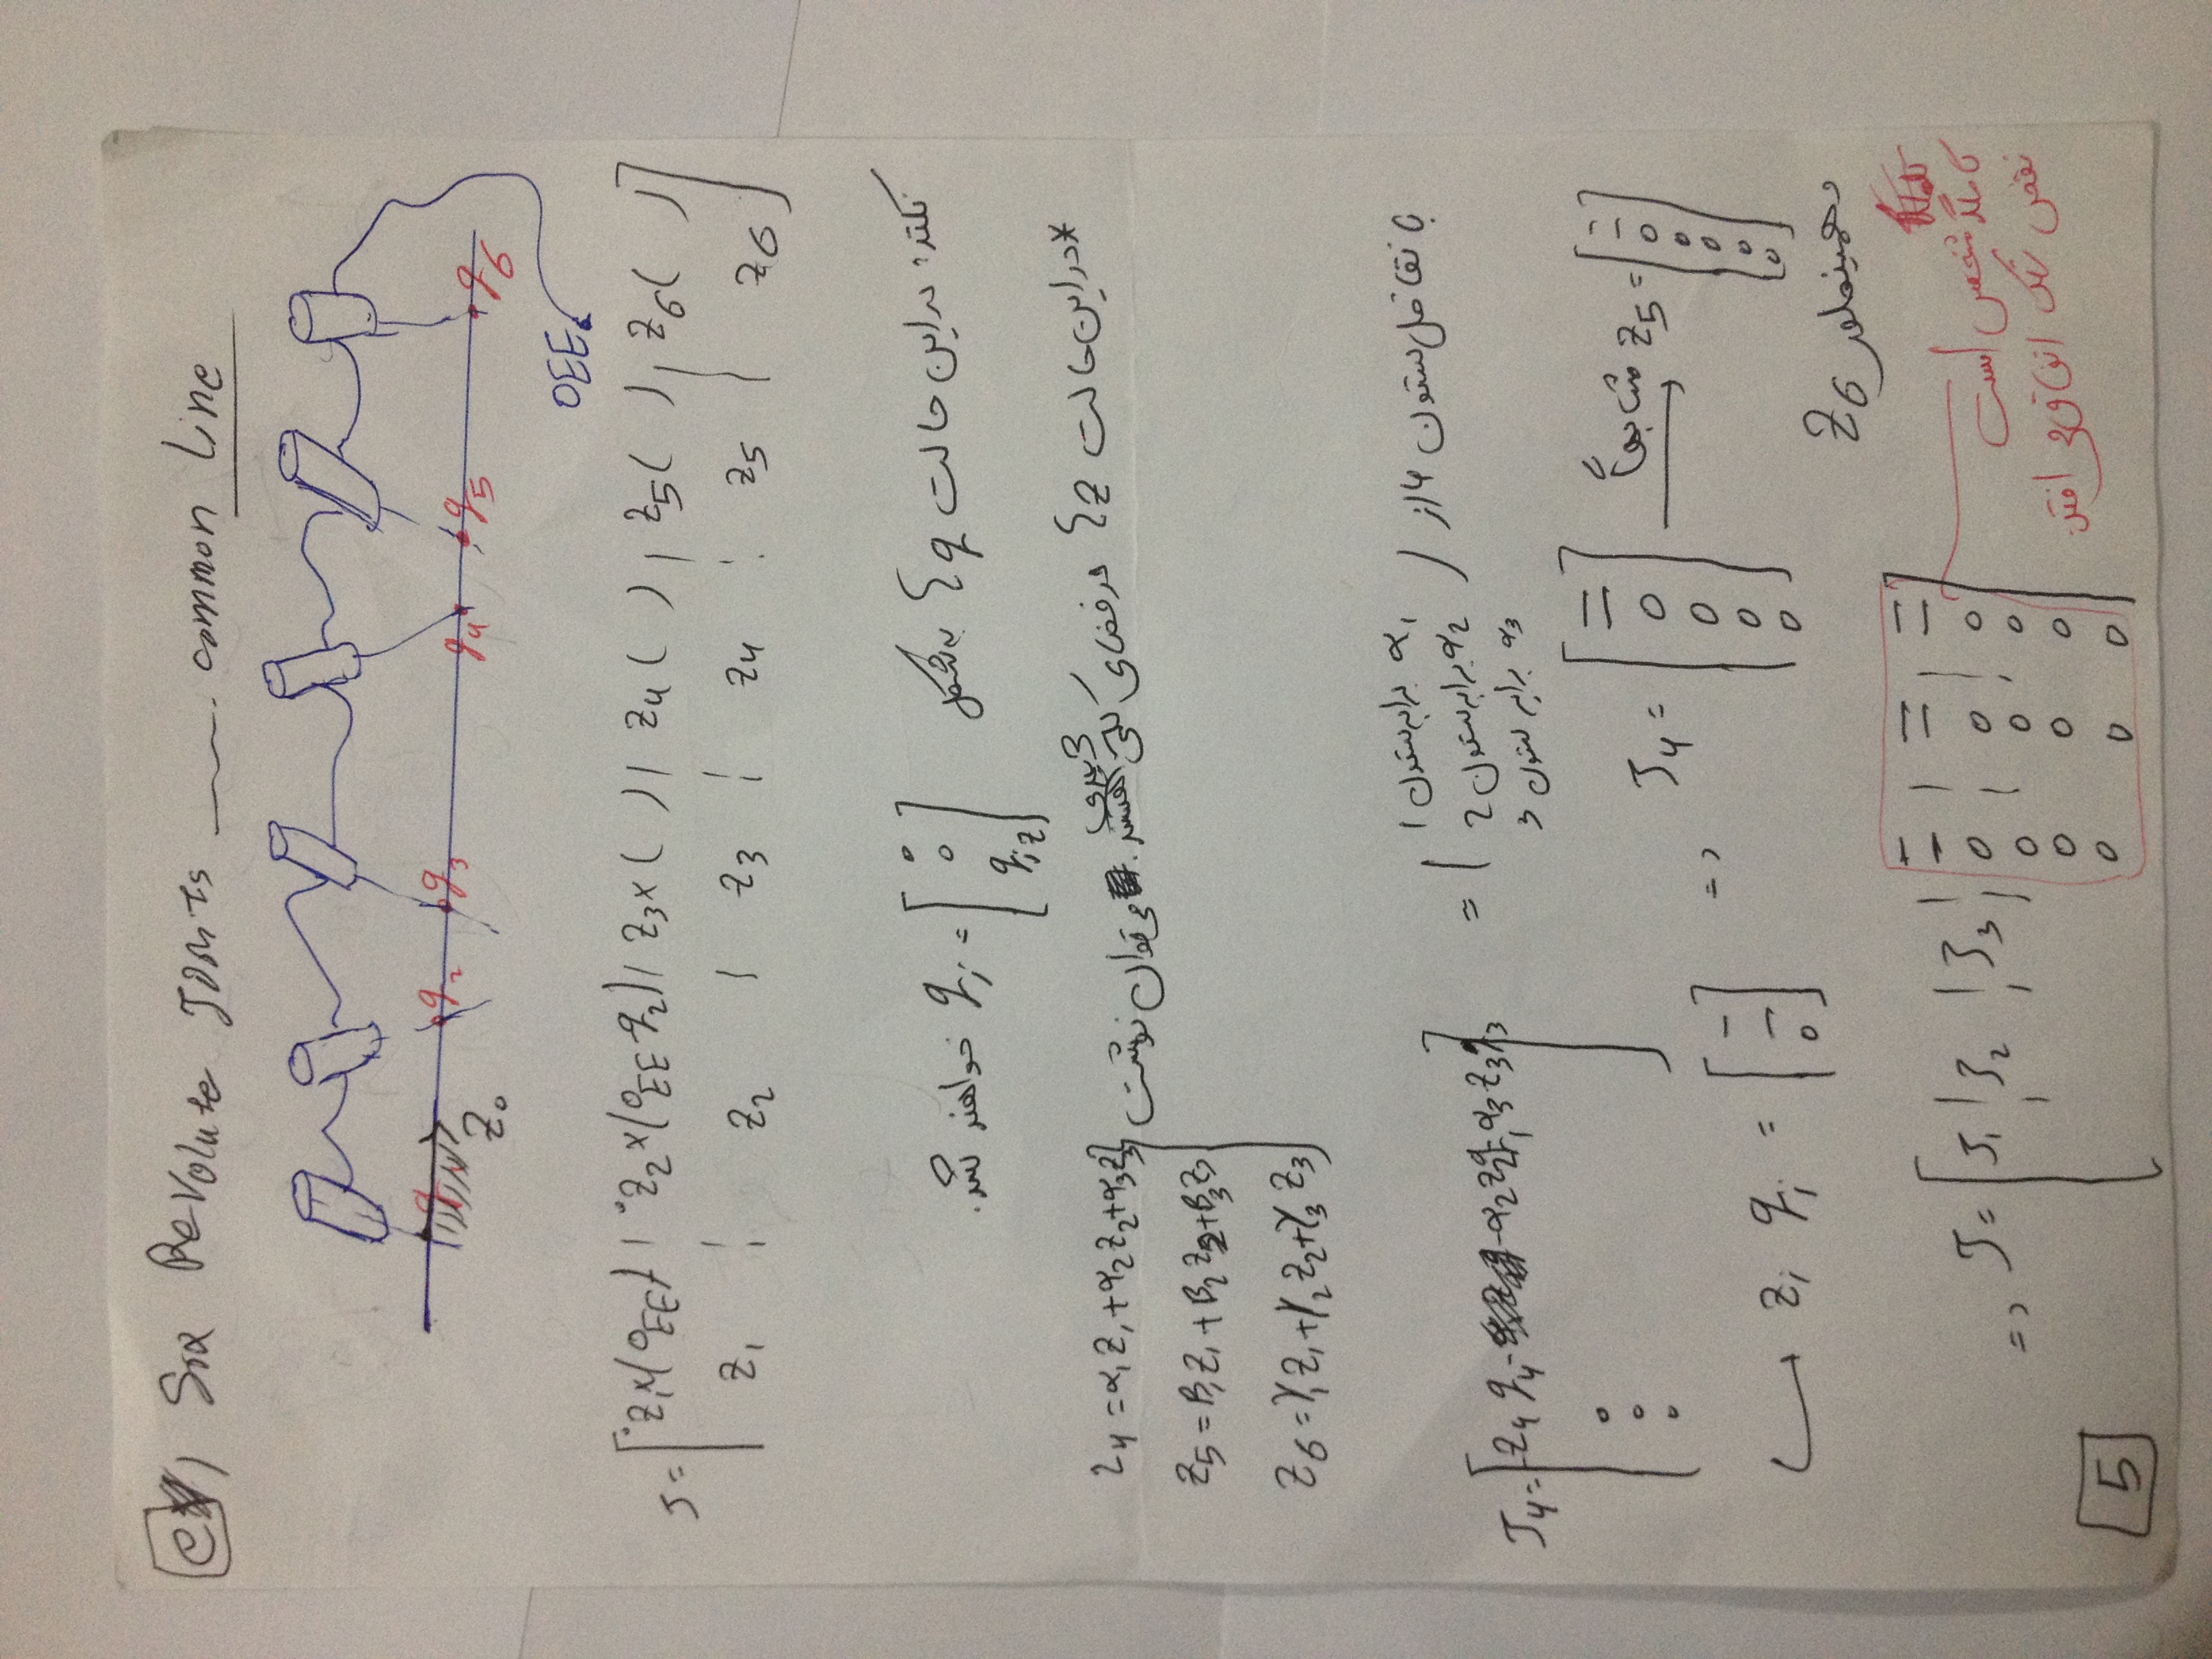 e, Six Revolute Joints ——. common Line
q₁ q₂ q₃ q₄ q₅ q₆
Z₀
OEE
J = [ Z₁×(O_EE) | Z₂×(O_EE-q₂) | Z₃×( ) | Z₄( ) | Z₅( ) | Z₆( )
Z₁ | Z₂ | Z₃ | Z₄ | Z₅ | Z₆ ]
نکته: در این حالت q ها به شکل qᵢ = [0 0 qᵢz] خواهند شد.
*در این حالت Z ها در فضای کلی 3 بعدی هستند. می توان نوشت
Z₄ = α₁Z₁ + α₂Z₂ + α₃Z₃
Z₅ = β₁Z₁ + β₂Z₂ + β₃Z₃
Z₆ = γ₁Z₁ + γ₂Z₂ + γ₃Z₃
با تفاضل ستون 4 از ( α₁ برابر ستون 1
α₂ برابر ستون 2
α₃ برابر ستون 3 ) =
J₄ = [ -Z₄ q₄ - α₂Z₂q₂ - α₃Z₃q₃
0
0
0 ]
↳ Zᵢ qᵢ = [ - - 0 ] => J₄ = [ - - 0 0 0 0 ] مشابهاً → Z₅ = [ - - 0 0 0 0 0 ]
و همینطور Z₆
=> J = [ J₁ | J₂ | J₃ | - - 0 0 0 0 | - - 0 0 0 0 | - - 0 0 0 0 ]
کاملاً مشخص است
نقص رنک اتفاق می افتد
5